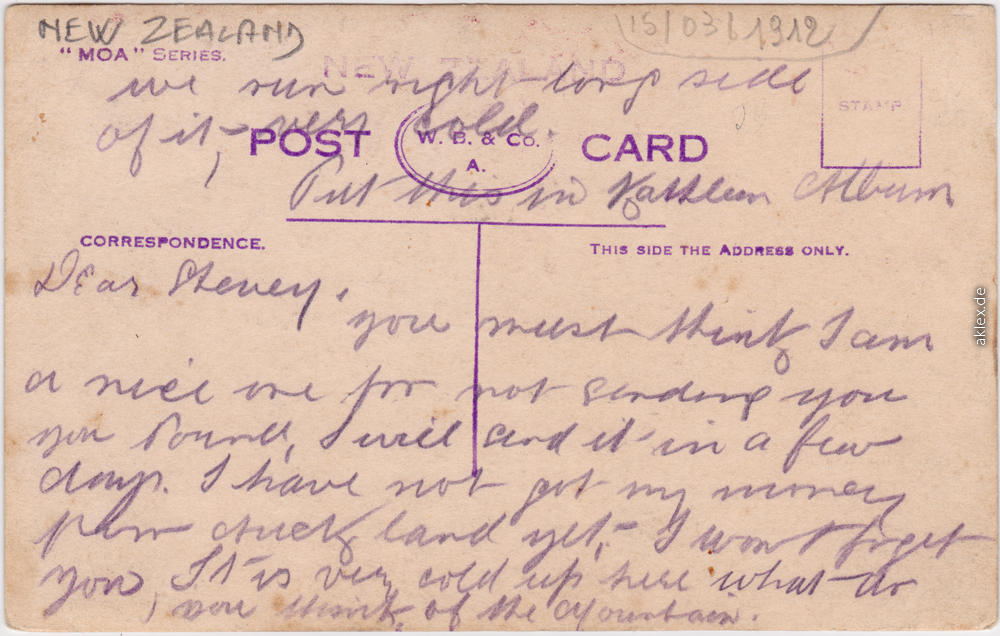 NEW ZEALAND
15/03/1912
"MOA" SERIES.
NEW ZEALAND
we run right long side
of it, very cold.
STAMP
POST W. B. & Co. A. CARD
Put this in Kathleen Album
CORRESPONDENCE.
THIS SIDE THE ADDRESS ONLY.
Dear Stevey,
you must think I am
a nice one for not sending you
you Pound, I will send it in a few
days. I have not got my money
from Auckland yet, I won't forget
you, It is very cold up here what do
you think of the Mountain.
aklex.de